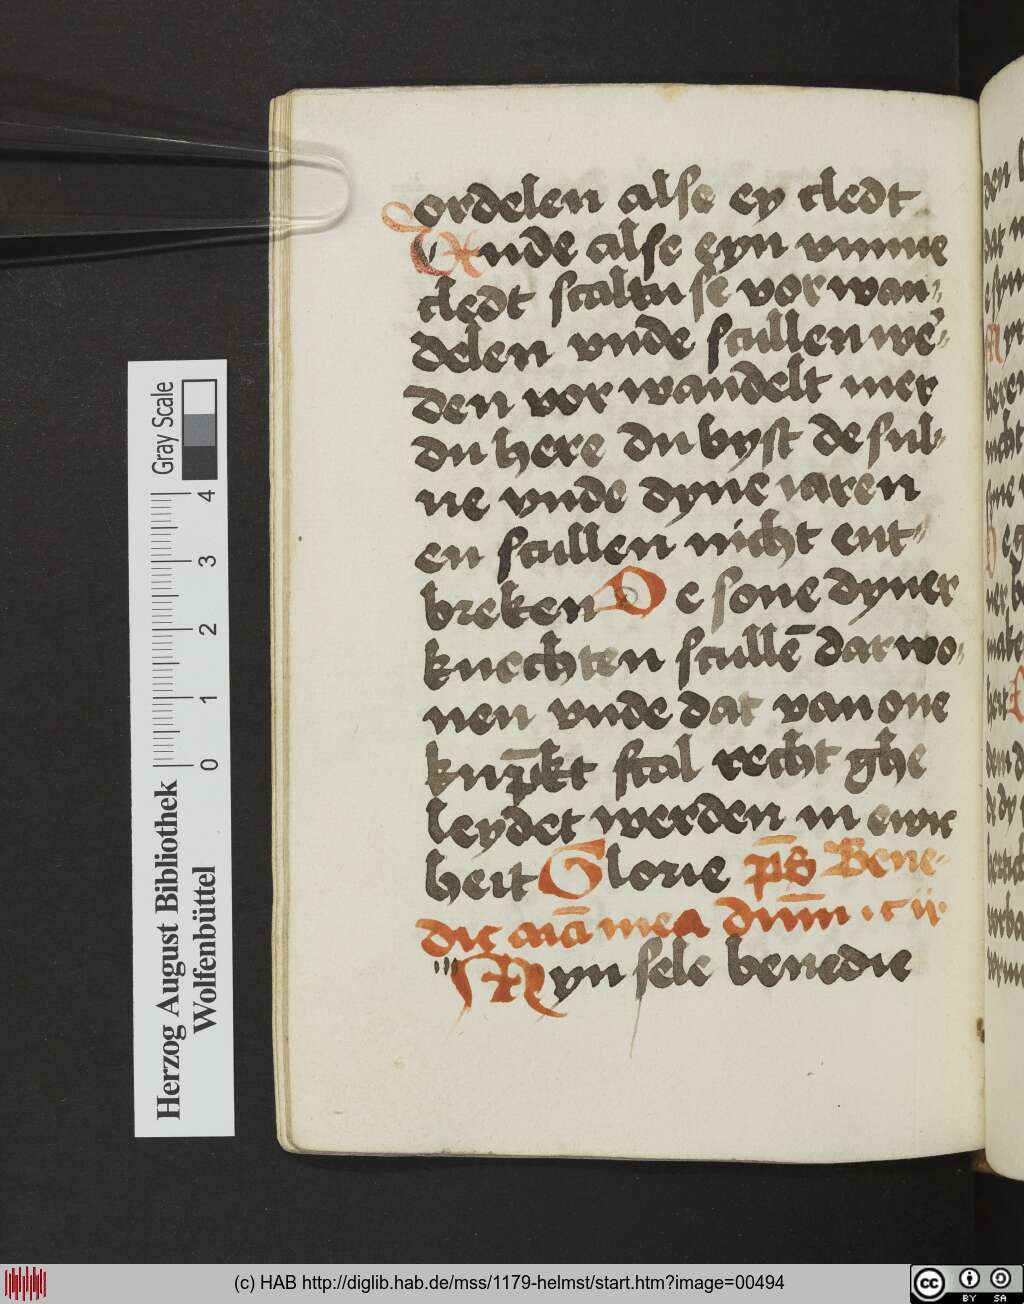 ordelen alse ey cledt
Unde alse eyn vmme
cledt scaltu se vorwan-
delen vnde scullen we̅-
den vorwandelt mer
du here du byst de sul-
ue vnde dyne iaren
en scullen nicht ent-
breken De sone dyner
knechten sculle̅ dar wo-
nen vnde dat van one
scal recht ghe
leydet werden in ewic
heit Glorie p̅s Bene-
dic ai̅a mea dn̅m · c ij
Myn sele benedie
Gray Scale
0 1 2 3 4
Herzog August Bibliothek
Wolfenbüttel
(c) HAB http://diglib.hab.de/mss/1179-helmst/start.htm?image=00494
cc BY SA